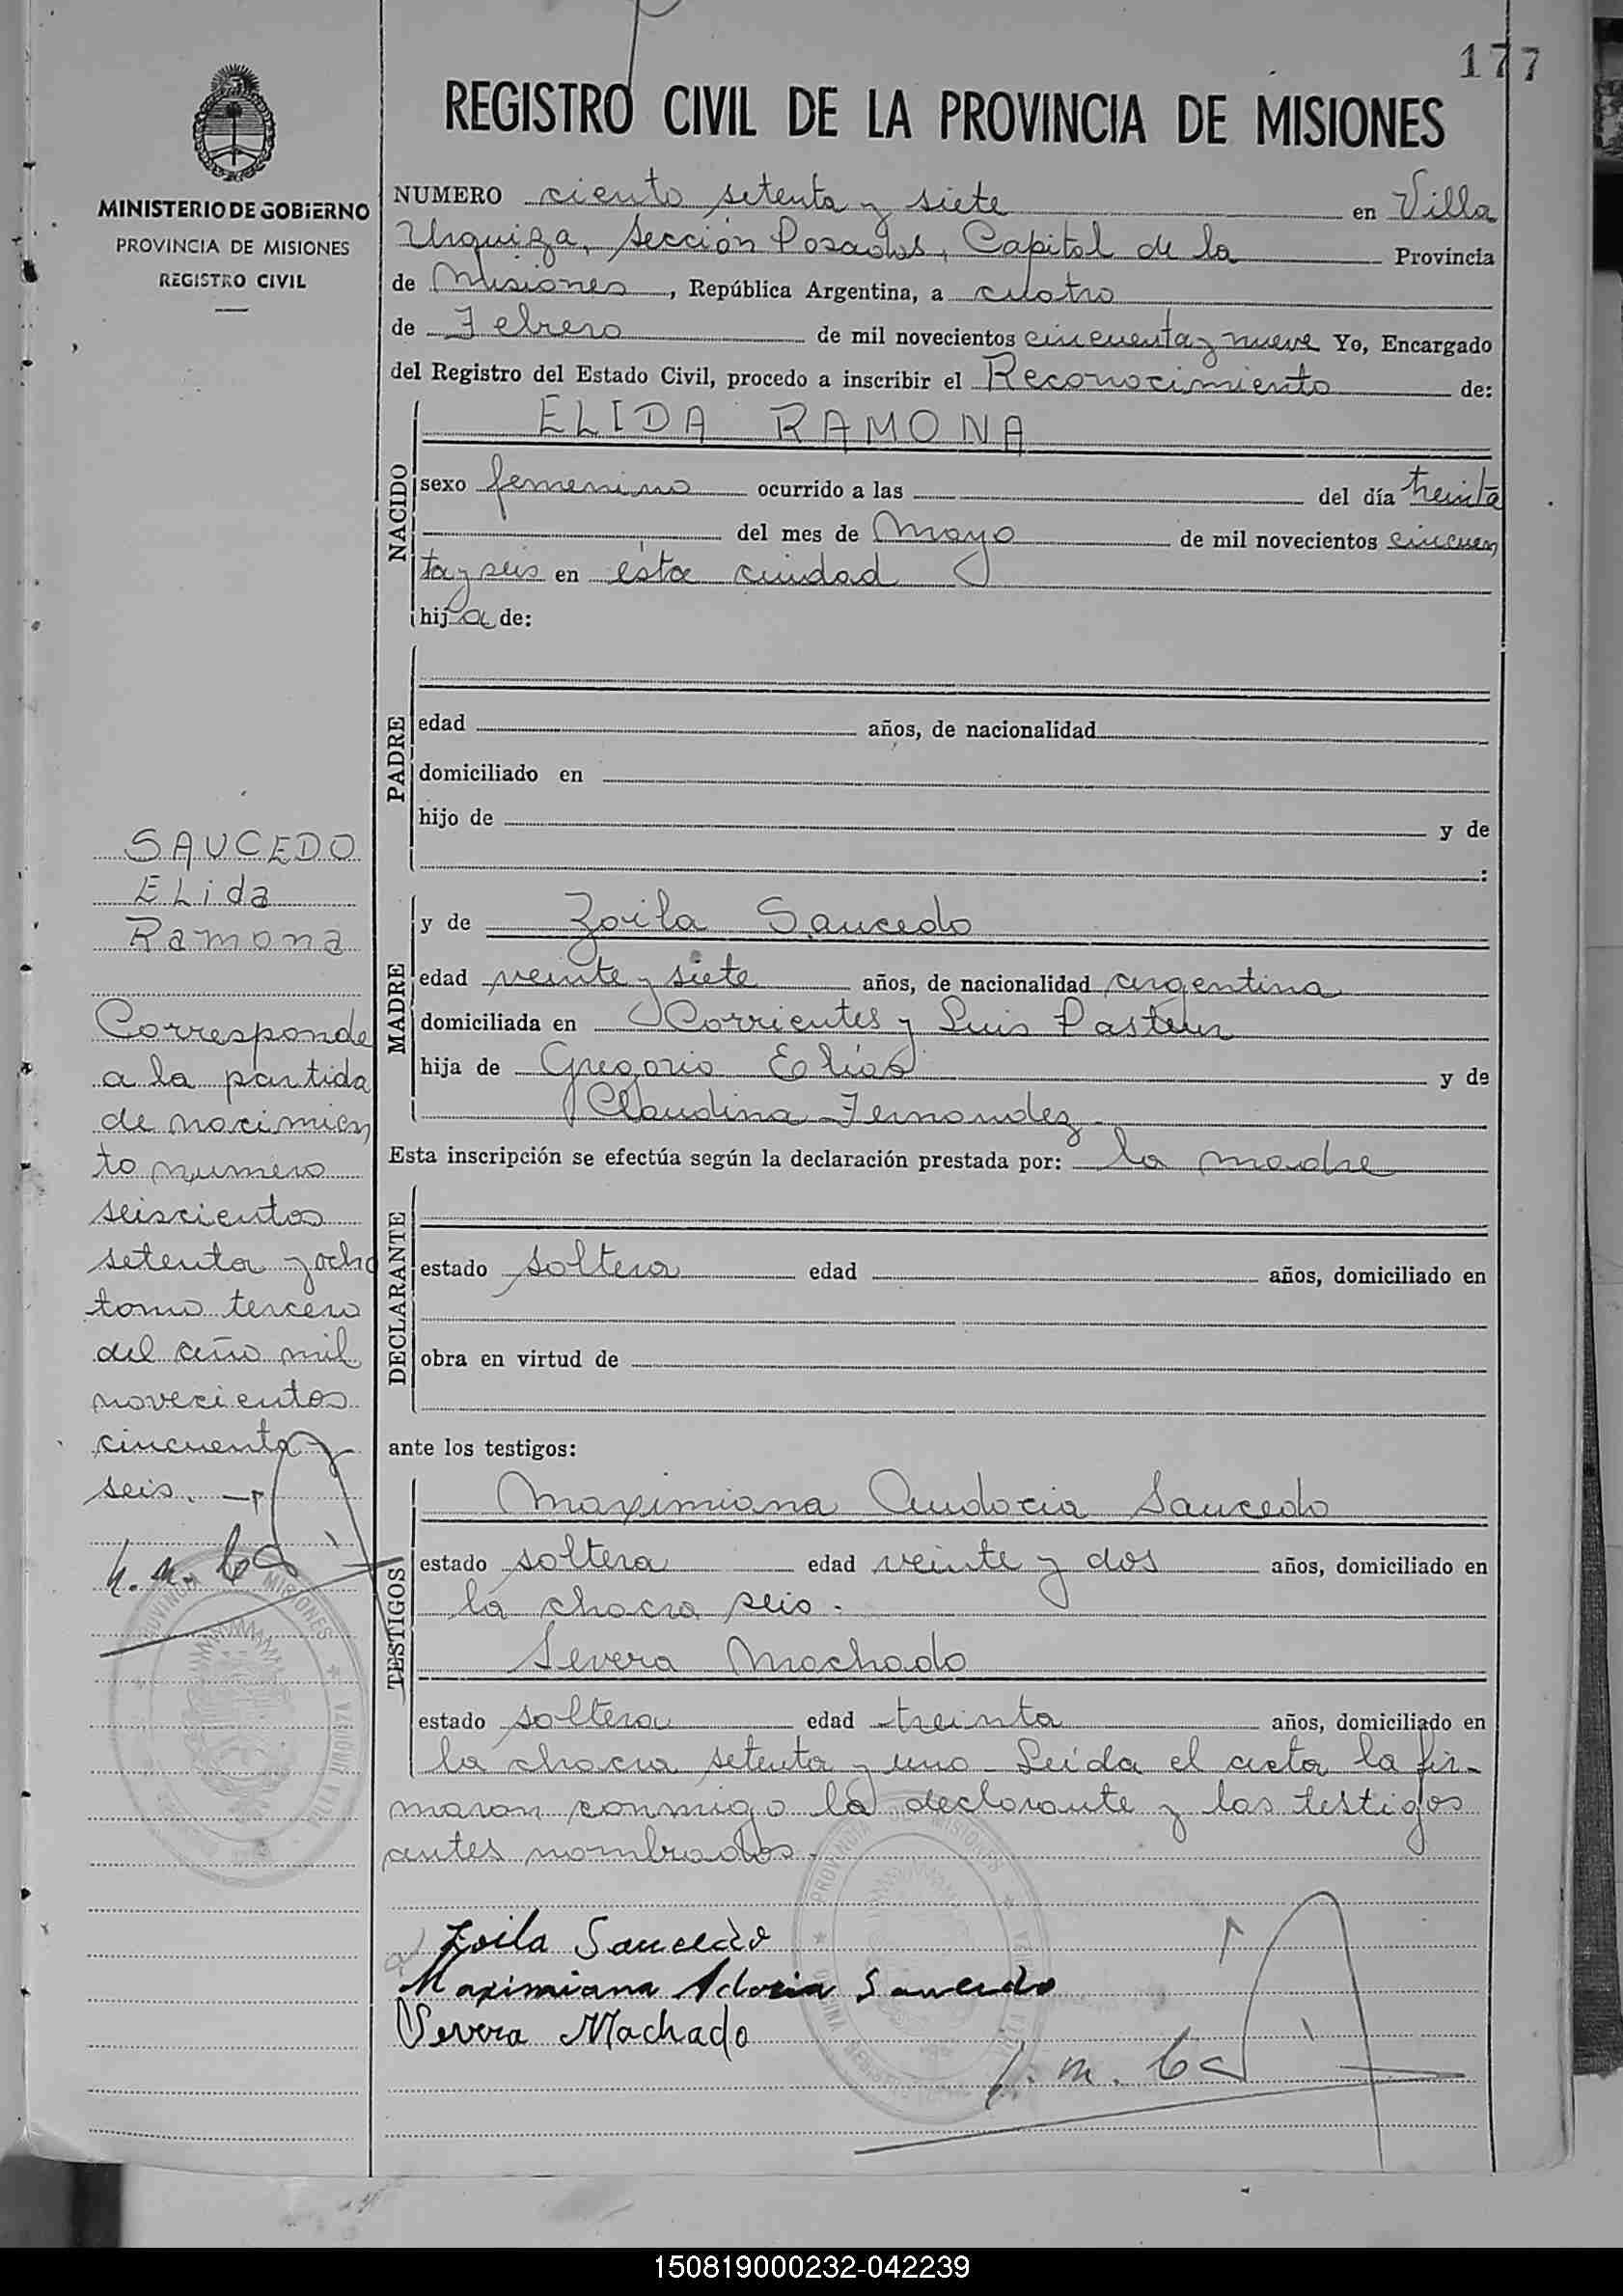 177
REGISTRO CIVIL DE LA PROVINCIA DE MISIONES
MINISTERIO DE GOBIERNO
PROVINCIA DE MISIONES
REGISTRO CIVIL
NUMERO ciento setenta y siete en Villa
Urquiza, Sección Posadas, Capital de la Provincia
de Misiones, República Argentina, a cuatro
de Febrero de mil novecientos cincuenta y nueve Yo, Encargado
del Registro del Estado Civil, procedo a inscribir el Reconocimiento de:
NACIDO
ELIDA RAMONA
sexo femenino ocurrido a las del día treinta
del mes de Mayo de mil novecientos cincuen
ta y seis en esta ciudad
hija de:
PADRE
edad años, de nacionalidad
domiciliado en
hijo de y de
:
MADRE
y de Zoila Saucedo
edad veinte y siete años, de nacionalidad argentina
domiciliada en Corrientes y Luis Pasteur
hija de Gregorio Elías y de
Claudina Fernandez
Esta inscripción se efectúa según la declaración prestada por: la madre
DECLARANTE
estado soltera edad años, domiciliado en
obra en virtud de
ante los testigos:
TESTIGOS
Maximiana Audocia Saucedo
estado soltera edad veinte y dos años, domiciliado en
la chacra seis.
Severa Machado
estado soltera edad treinta años, domiciliado en
la chacra setenta y uno. Leída el acta la fir-
maron conmigo la declarante y las testigos
antes nombrados.
Zoila Saucedo
Maximiana Saucedo
Severa Machado
SAUCEDO
ELida
Ramona
Corresponde
a la partida
de nacimien
to numero
seiscientos
setenta y ocho
tomo tercero
del año mil
novecientos
cincuenta y
seis.
PROVINCIA DE MISIONES
PROVINCIA DE MISIONES
150819000232-042239